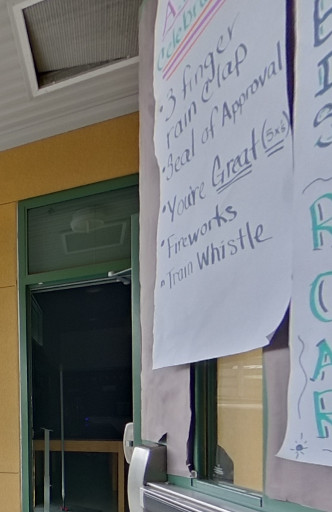 A
Celebra
• 3 finger
rain Clap
• Seal of Approval
• You're Great (5x's)
• Fireworks
• Train Whistle
E
I
S
R
O
A
R